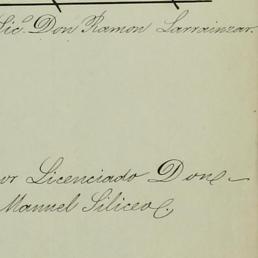 Lic.º Don Ramon Larrainzar.
or Licenciado Don
Manuel Siliceo,